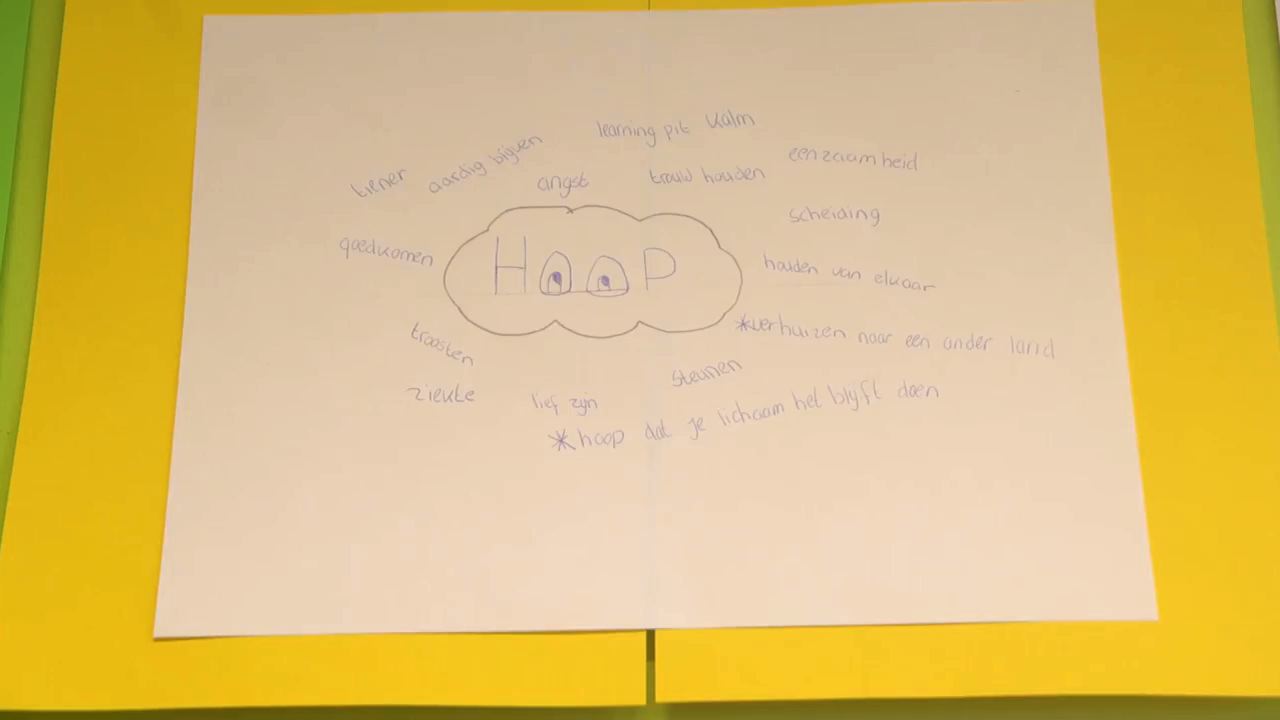 learning pit kalm
aardig blijven
eenzaamheid
tiener
angst
trouw houden
scheiding
goedkomen
HOOP
houden van elkaar
*verhuizen naar een ander land
troosten
steunen
ziekte
lief zijn
*hoop dat je lichaam het blijft doen